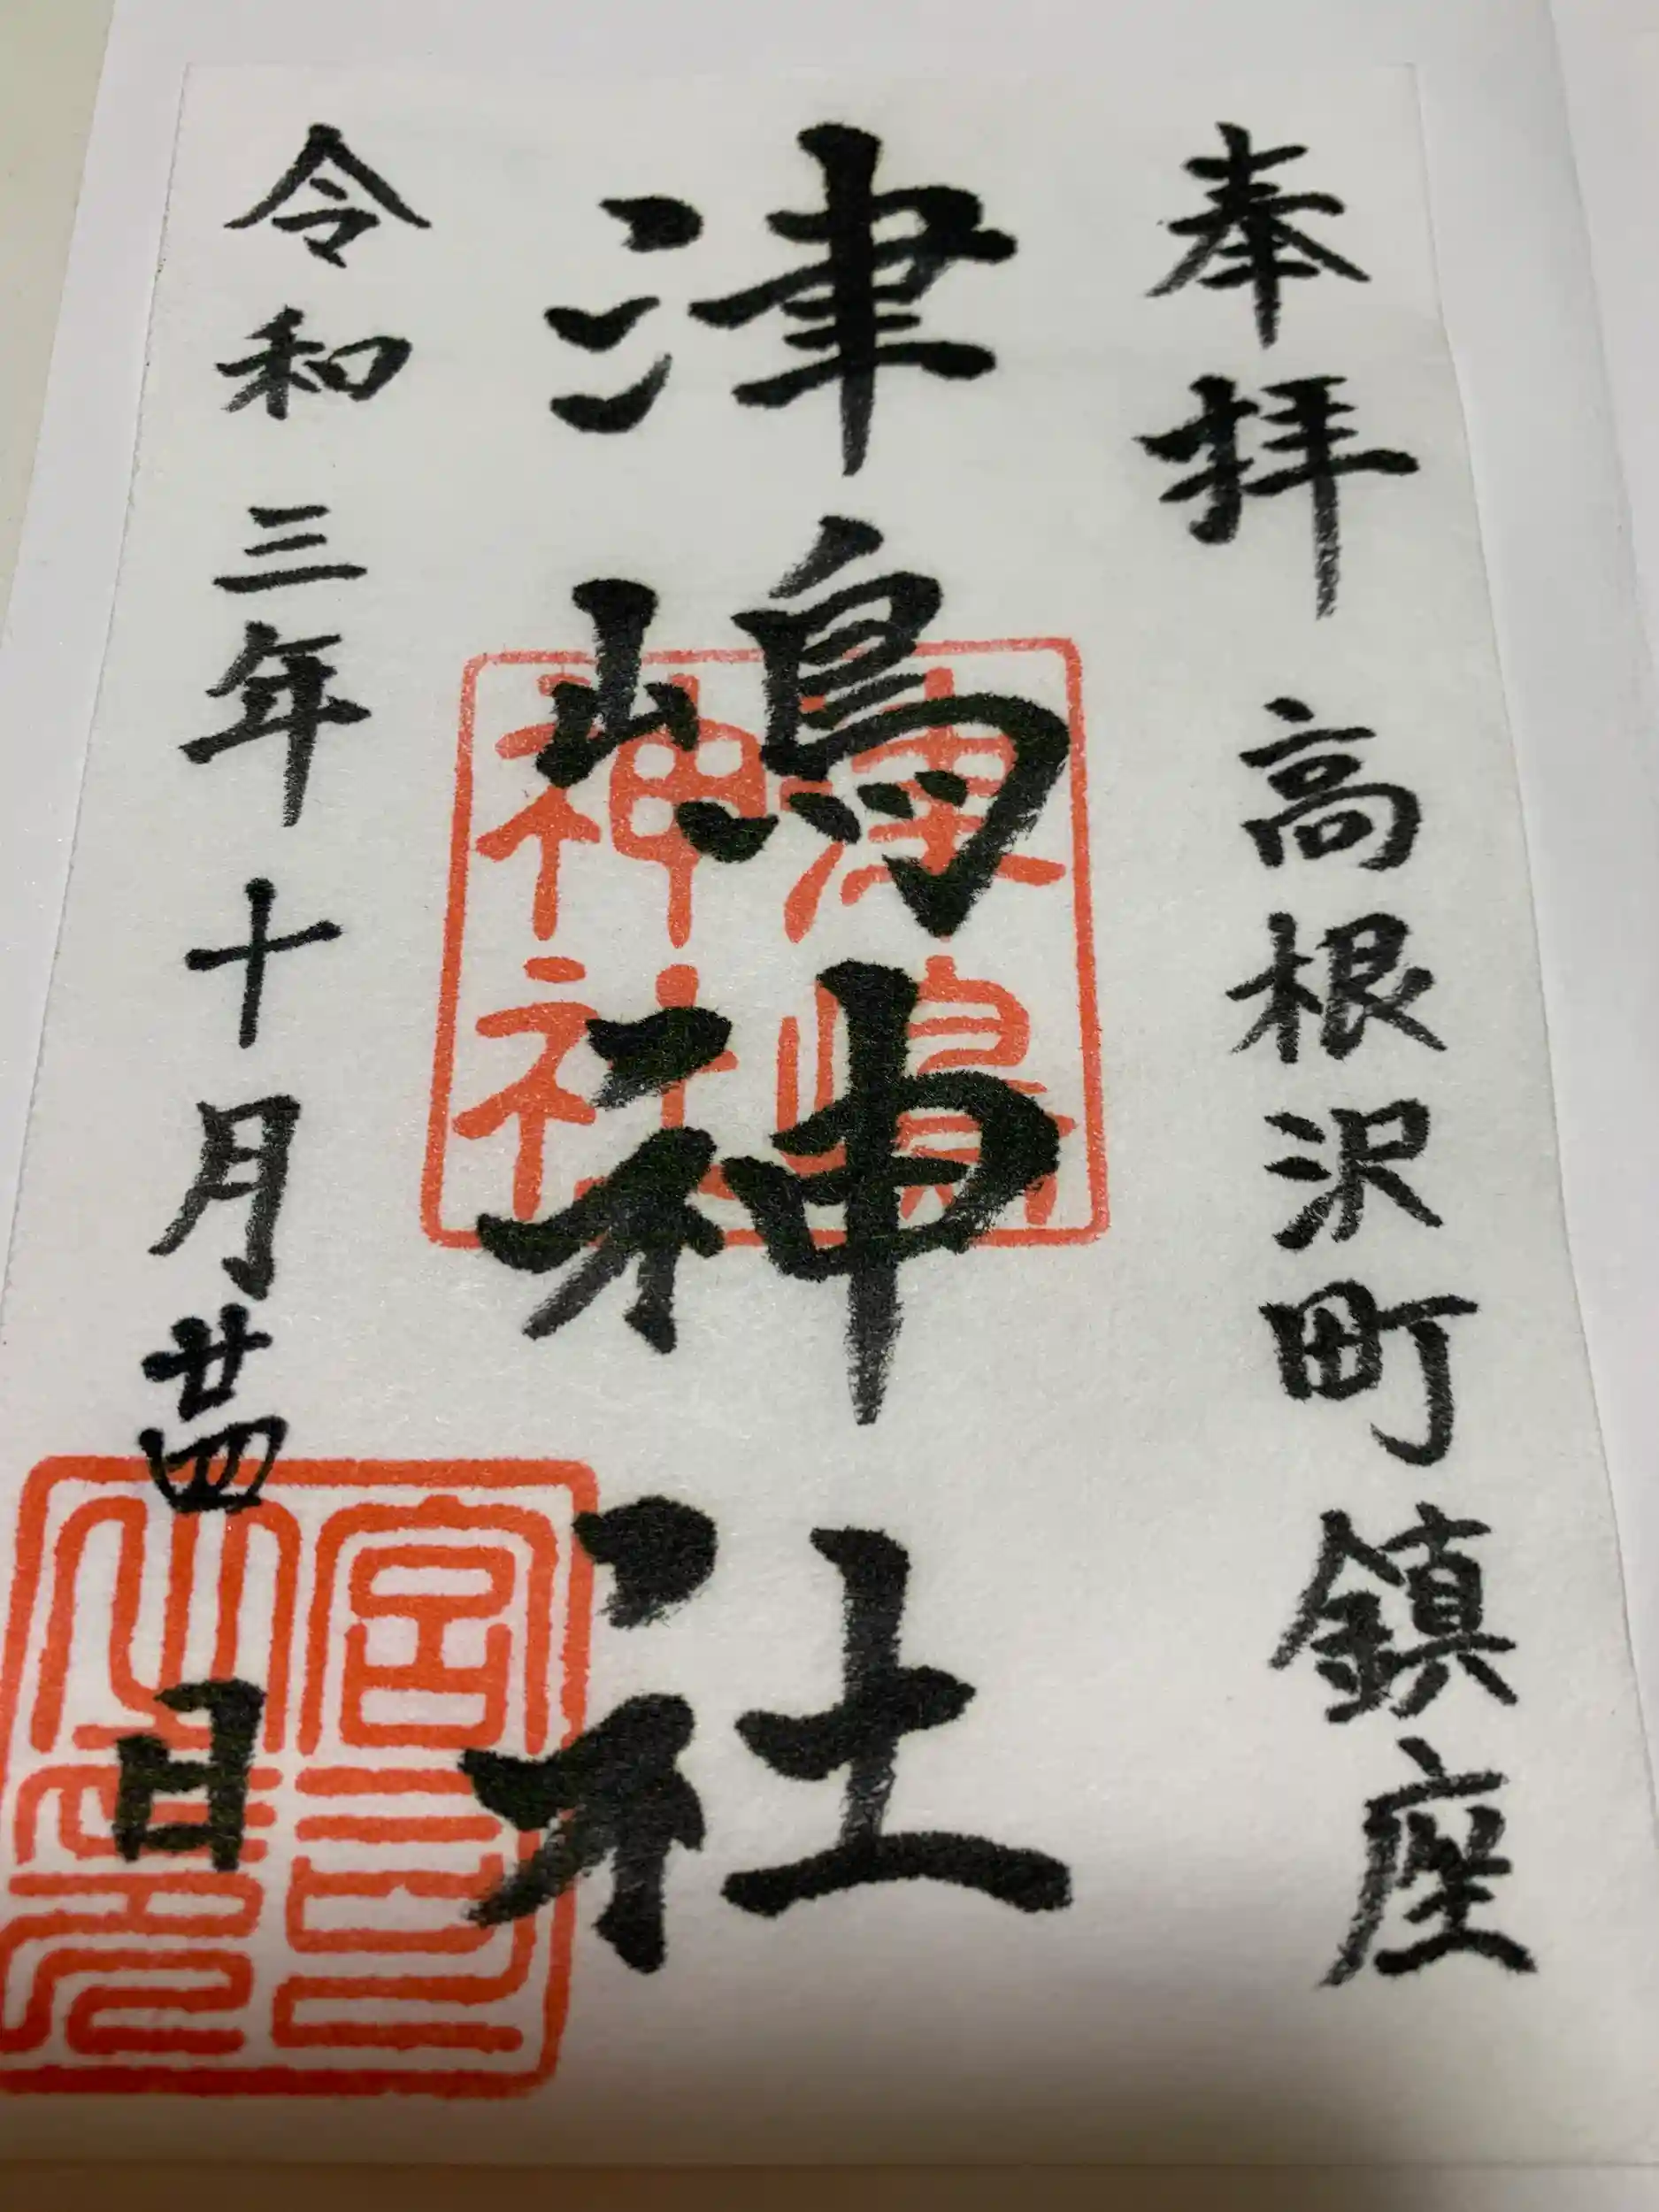 奉拝 高根沢町鎮座
津嶋神社
津嶋神社
令和三年十月廿四日
宮司之印